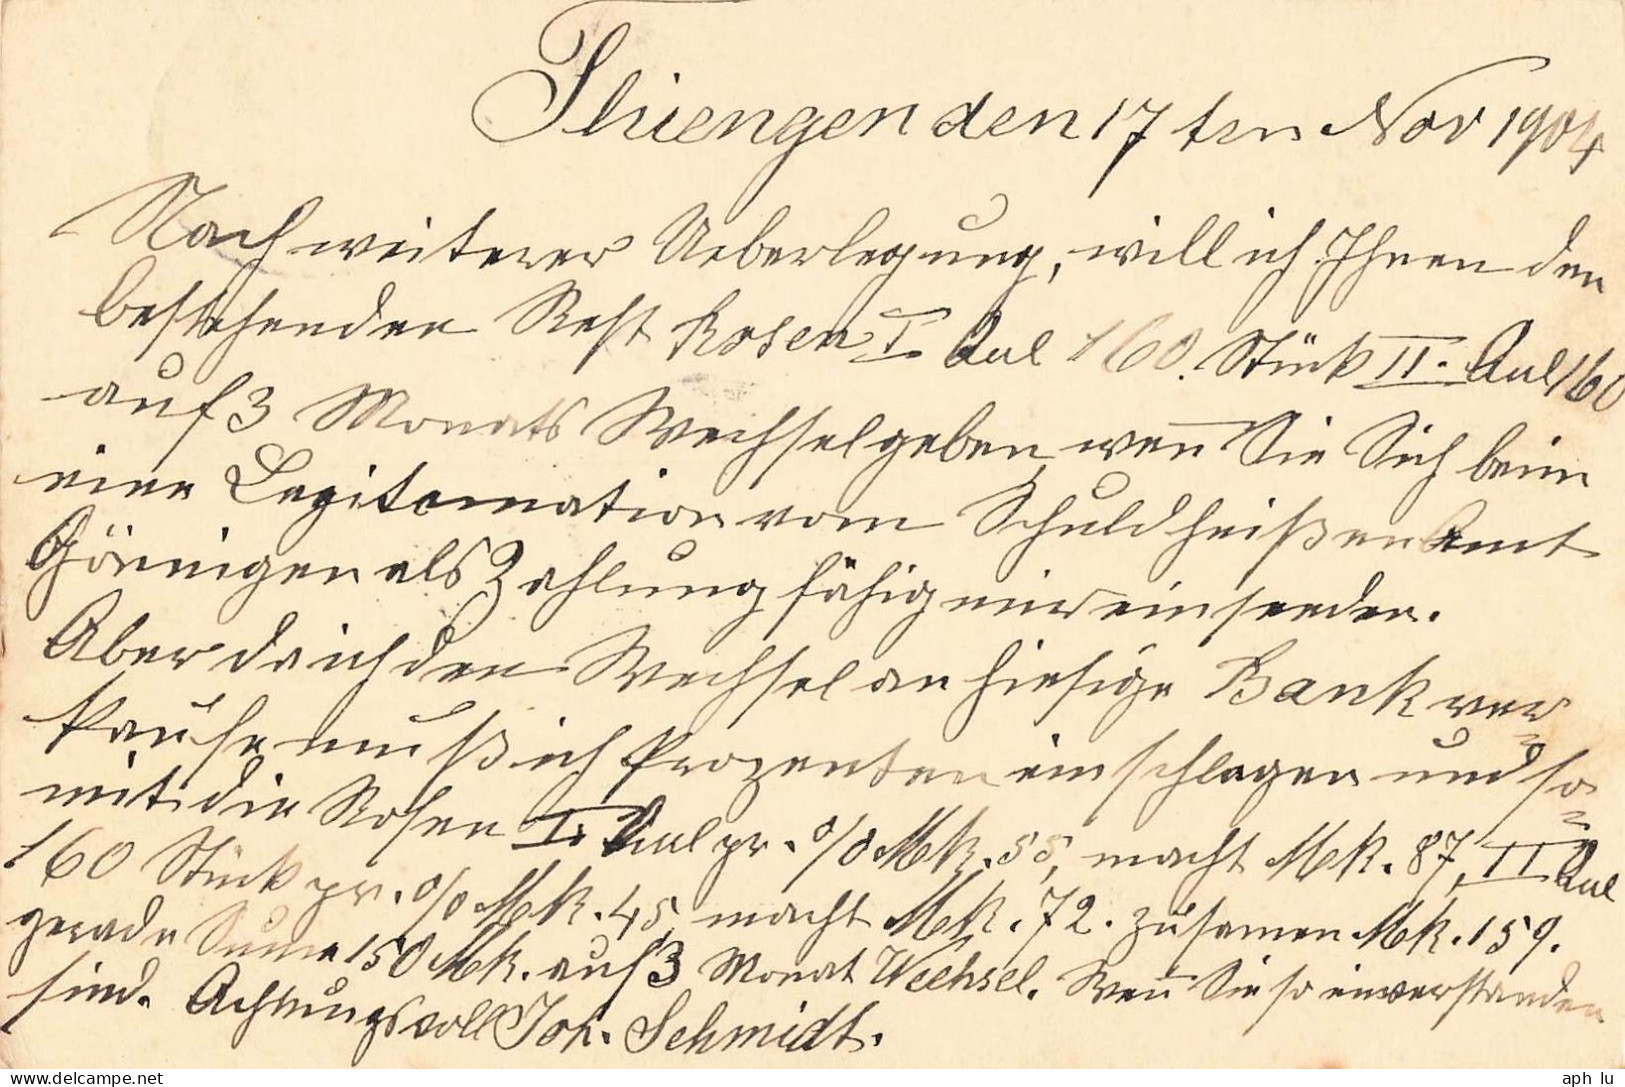 Thiengen den 17ten Nov 1904
Nach weiterer Ueberlegung, will ich Ihnen den
bestehenden Rest Rosen I Qual 160. Stück II. Qual 160
auf 3 Monats Wechsel geben, wen̄ Sie Sich beim
eine Legitimation vom Schuldheißen Amt
Gönningen als Zahlungfähig mir einsenden.
Aber da ich den Wechsel an hiesige Bank ver
kaufe muß ich Prozenten einschlagen und so
mit die Rosen I. Qual pr. % Mk. 55, macht Mk. 87, II Qual
160 Stück pr. % Mk. 45, macht Mk. 72. zusamen Mk. 159.
gerade Sume 150 Mk. auf 3 Monat Wechsel. Wen̄ Sie so einverstanden
sind. Achtungsvoll Joh. Schmidt.
aph_lu
www.delcampe.net